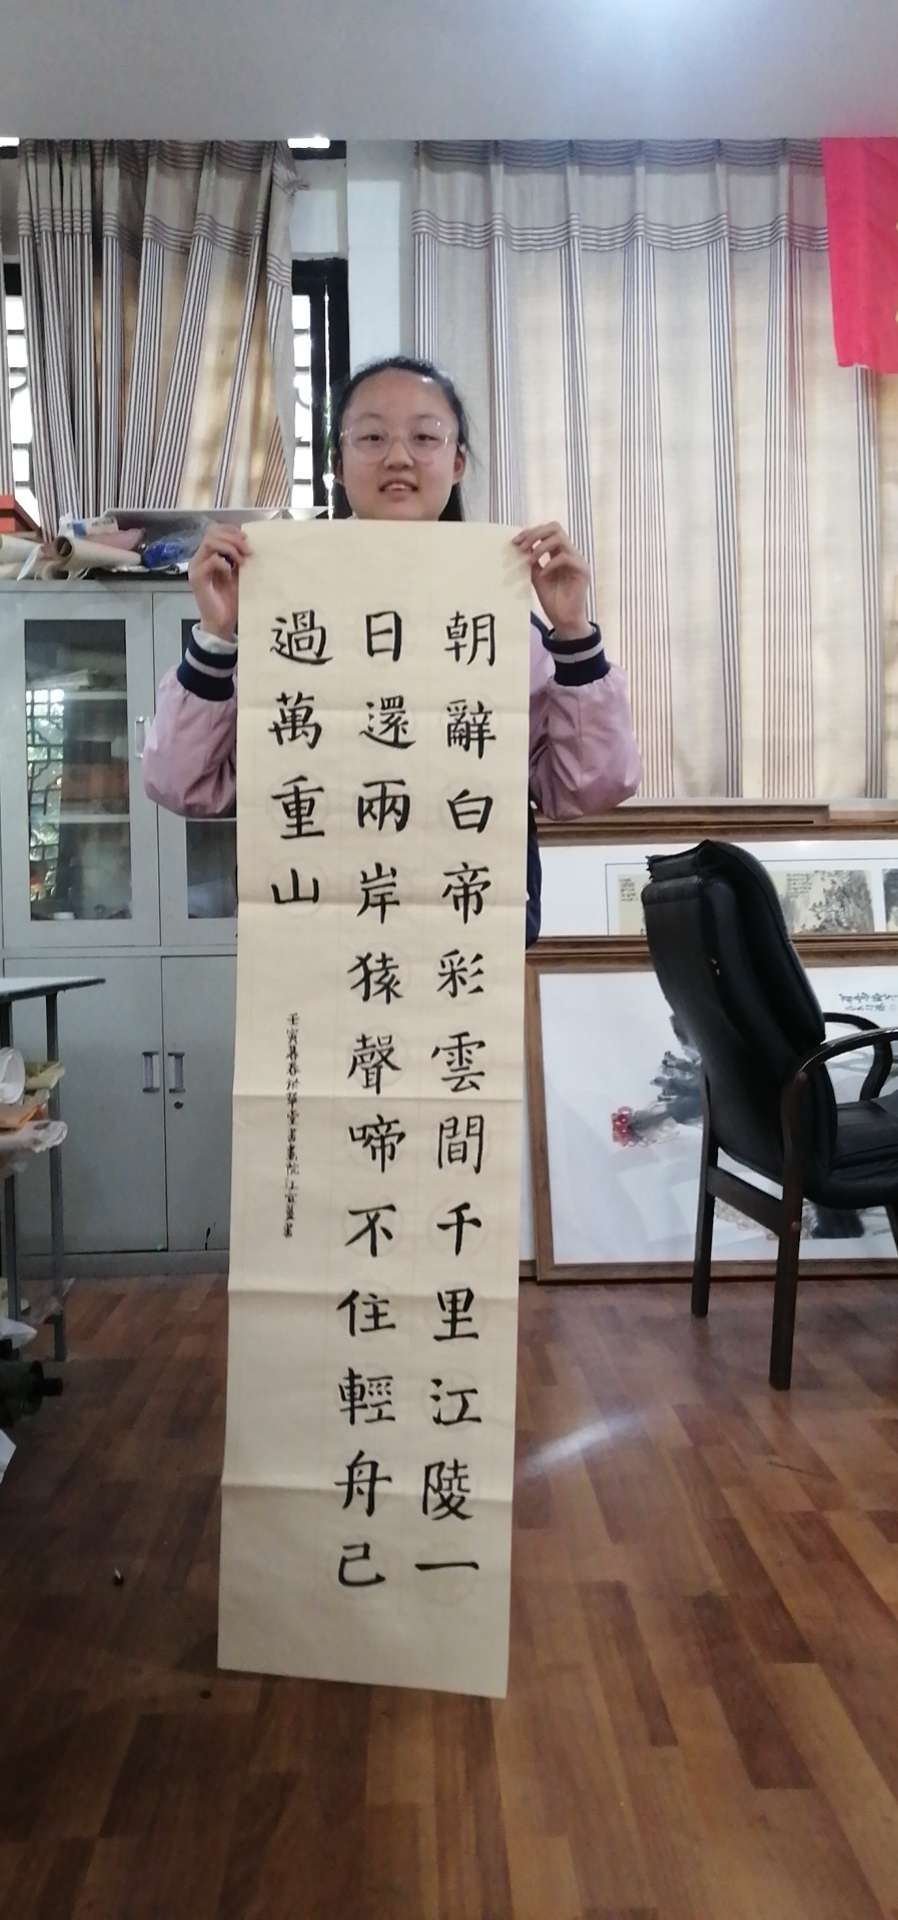 朝辭白帝彩雲間千里江陵一
日還兩岸猿聲啼不住輕舟己
過萬重山
壬寅暮春
書畫院
書